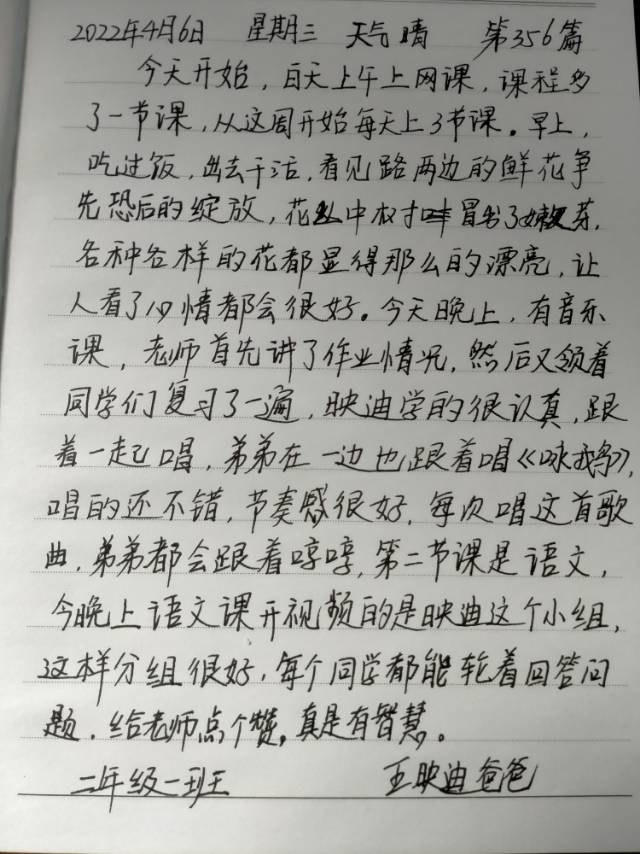 2022年4月6日 星期三 天气晴 第356篇
今天开始，白天上午上网课，课程多
了一节课，从这周开始每天上3节课。早上，
吃过饭，出去干活，看见路两边的鲜花争
先恐后的绽放，花丛中树才冒出了嫩芽，
各种各样的花都显得那么的漂亮，让
人看了心情都会很好。今天晚上，有音乐
课，老师首先讲了作业情况，然后又领着
同学们复习了一遍，映迪学的很认真，跟
着一起唱，弟弟在一边也跟着唱《咏鹅》，
唱的还不错，节奏感很好，每次唱这首歌
曲，弟弟都会跟着哼哼，第二节课是语文，
今晚上语文课开视频的是映迪这个小组，
这样分组很好，每个同学都能轮着回答问
题，给老师点个赞，真是有智慧。
二年级一班 王映迪爸爸